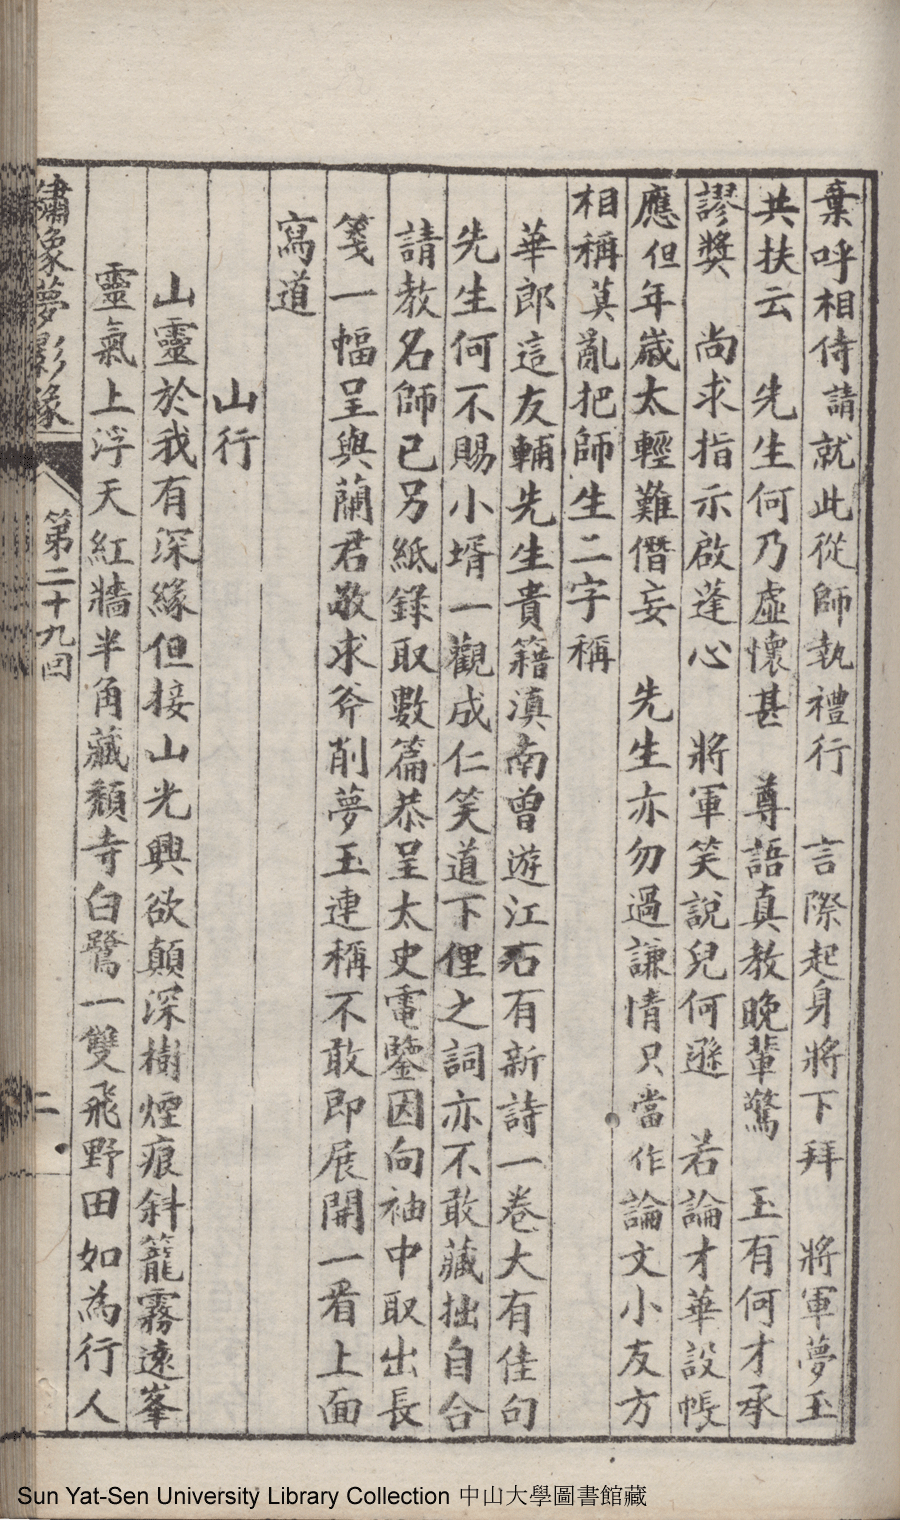 棄呼相侍請就此從師執禮行　言際起身將下拜　將軍夢玉
共扶云　先生何乃虛懷甚　尊語真教晚輩驚　玉有何才承
謬獎　尚求指示啟蓬心　將軍笑說兒何遜　若論才華設帳
應但年歲太輕難僭妄　先生亦勿過謙情只當作論文小友方
相稱莫亂把師生二字稱
華郎這友輔先生貴籍滇南曾遊江右有新詩一卷大有佳句
先生何不賜小壻一觀成仁笑道下俚之詞亦不敢藏拙自合
請教名師已另紙錄取數篇恭呈太史電鑒因向袖中取出長
箋一幅呈與蘭君敬求斧削夢玉連稱不敢即展開一看上面
寫道
山行
山靈於我有深緣但接山光興欲顛深樹煙痕斜籠霧遠峯
靈氣上浮天紅牆半角藏頹寺白鷺一雙飛野田如為行人
繡像夢影緣
第二十九回
二
Sun Yat-Sen University Library Collection 中山大學圖書館藏